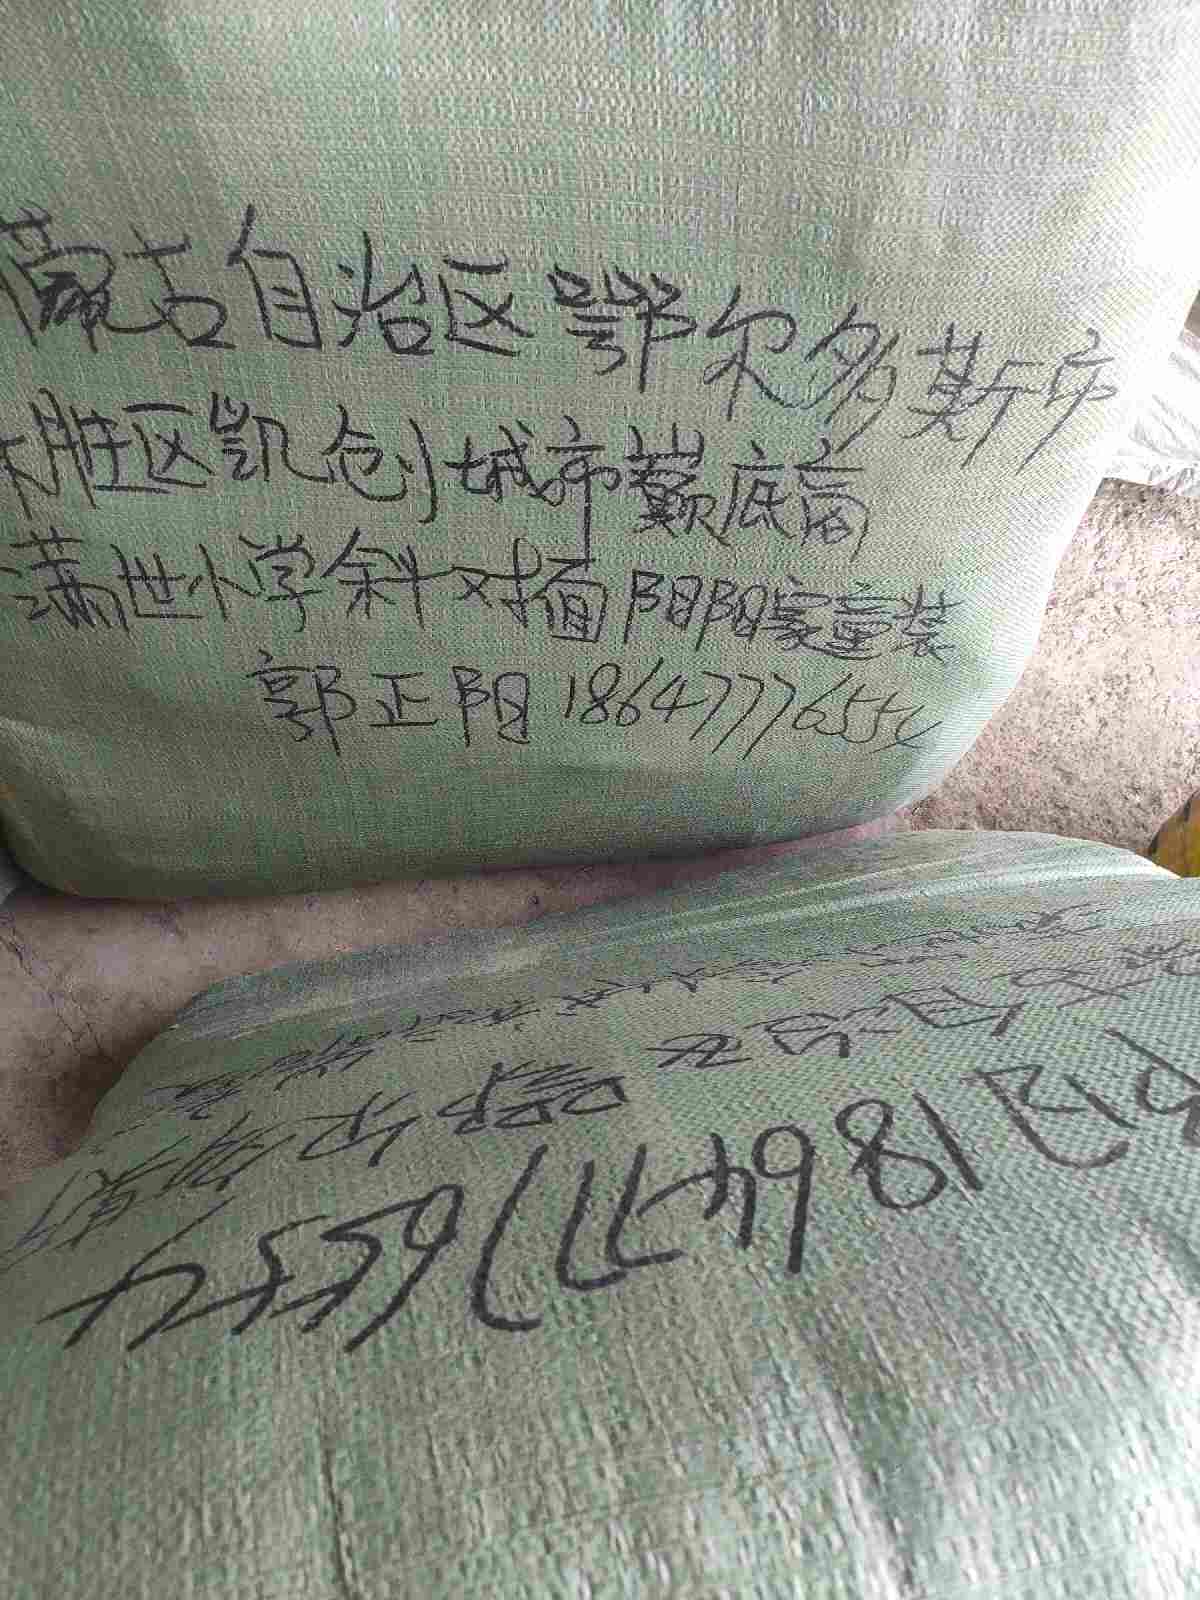 蒙古自治区鄂尔多斯市
胜区凯创城市巅底商
满世小学斜对面阳阳家童装
郭正阳 18647776554
阳 18647776554
自治区 鄂尔多斯